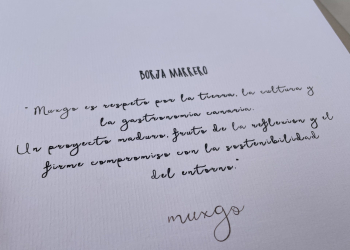 BORJA MARRERO
"Muxgo es respeto por la tierra, la cultura y
la gastronomia canaria.
Un proyecto maduro, fruto de la reflexion y el
firme compromiso con la sostenibilidad
del entorno."
muxgo